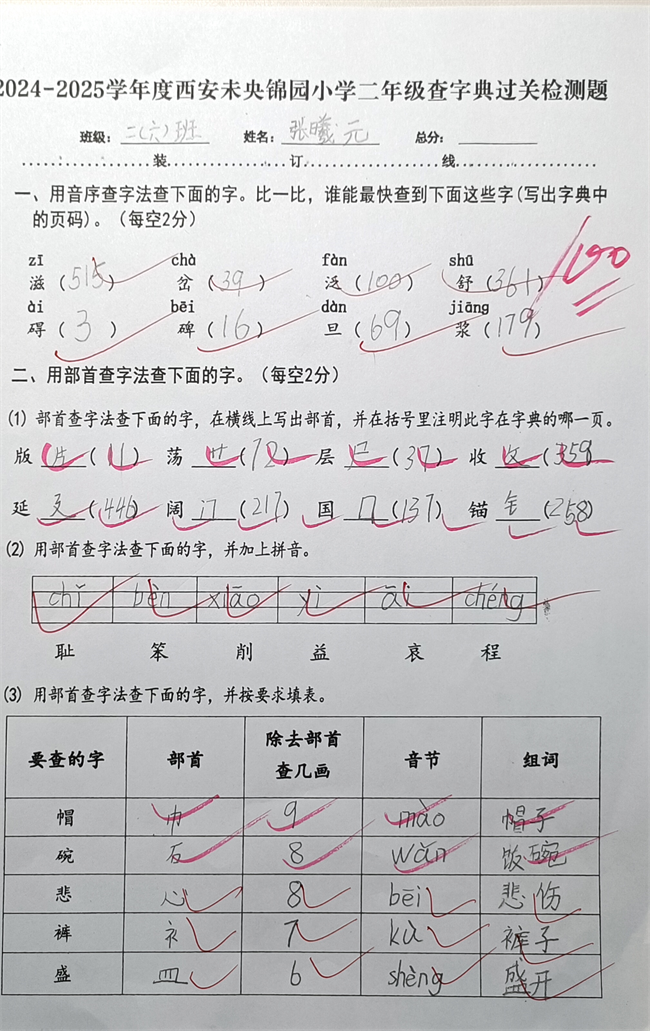 2024-2025学年度西安未央锦园小学二年级查字典过关检测题
班级：二（六）班 姓名：张曦元 总分：
装 订 线
一、用音序查字法查下面的字。比一比，谁能最快查到下面这些字（写出字典中
的页码）。（每空2分）
100
zī chà fàn shū
滋（515） 岔（39） 泛（100） 舒（361）
ài bēi dàn jiāng
碍（3） 碑（16） 旦（69） 浆（179）
二、用部首查字法查下面的字。（每空2分）
（1）部首查字法查下面的字，在横线上写出部首，并在括号里注明此字在字典的哪一页。
版 片（11） 荡 艹（72） 层 尸（37） 收 攵（359）
延 廴（446） 阔 门（217） 国 囗（137） 锚 钅（258）
（2）用部首查字法查下面的字，并加上拼音。
chǐ bèn xiāo yì āi chéng
耻 笨 削 益 哀 程
（3）用部首查字法查下面的字，并按要求填表。
要查的字 部首 除去部首查几画 音节 组词
帽 巾 9 mào 帽子
碗 石 8 wǎn 饭碗
悲 心 8 bēi 悲伤
裤 衤 7 kù 裤子
盛 皿 6 shèng 盛开